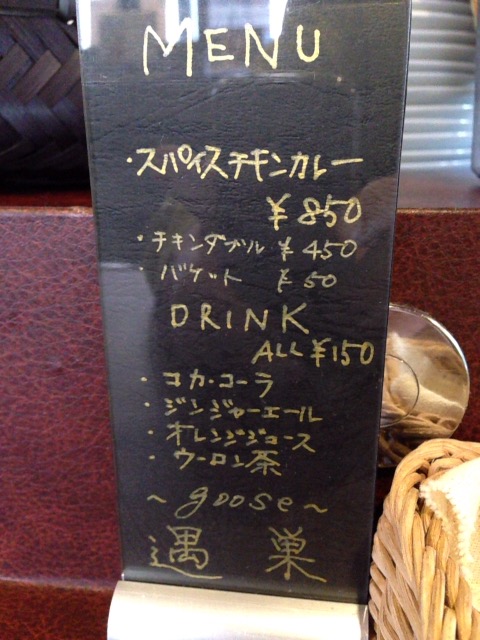 MENU
・スパイスチキンカレー
¥850
・チキンダブル ¥450
・バゲット ¥50
DRINK
ALL ¥150
・コカ・コーラ
・ジンジャーエール
・オレンジジュース
・ウーロン茶
~goose~
遇 巣